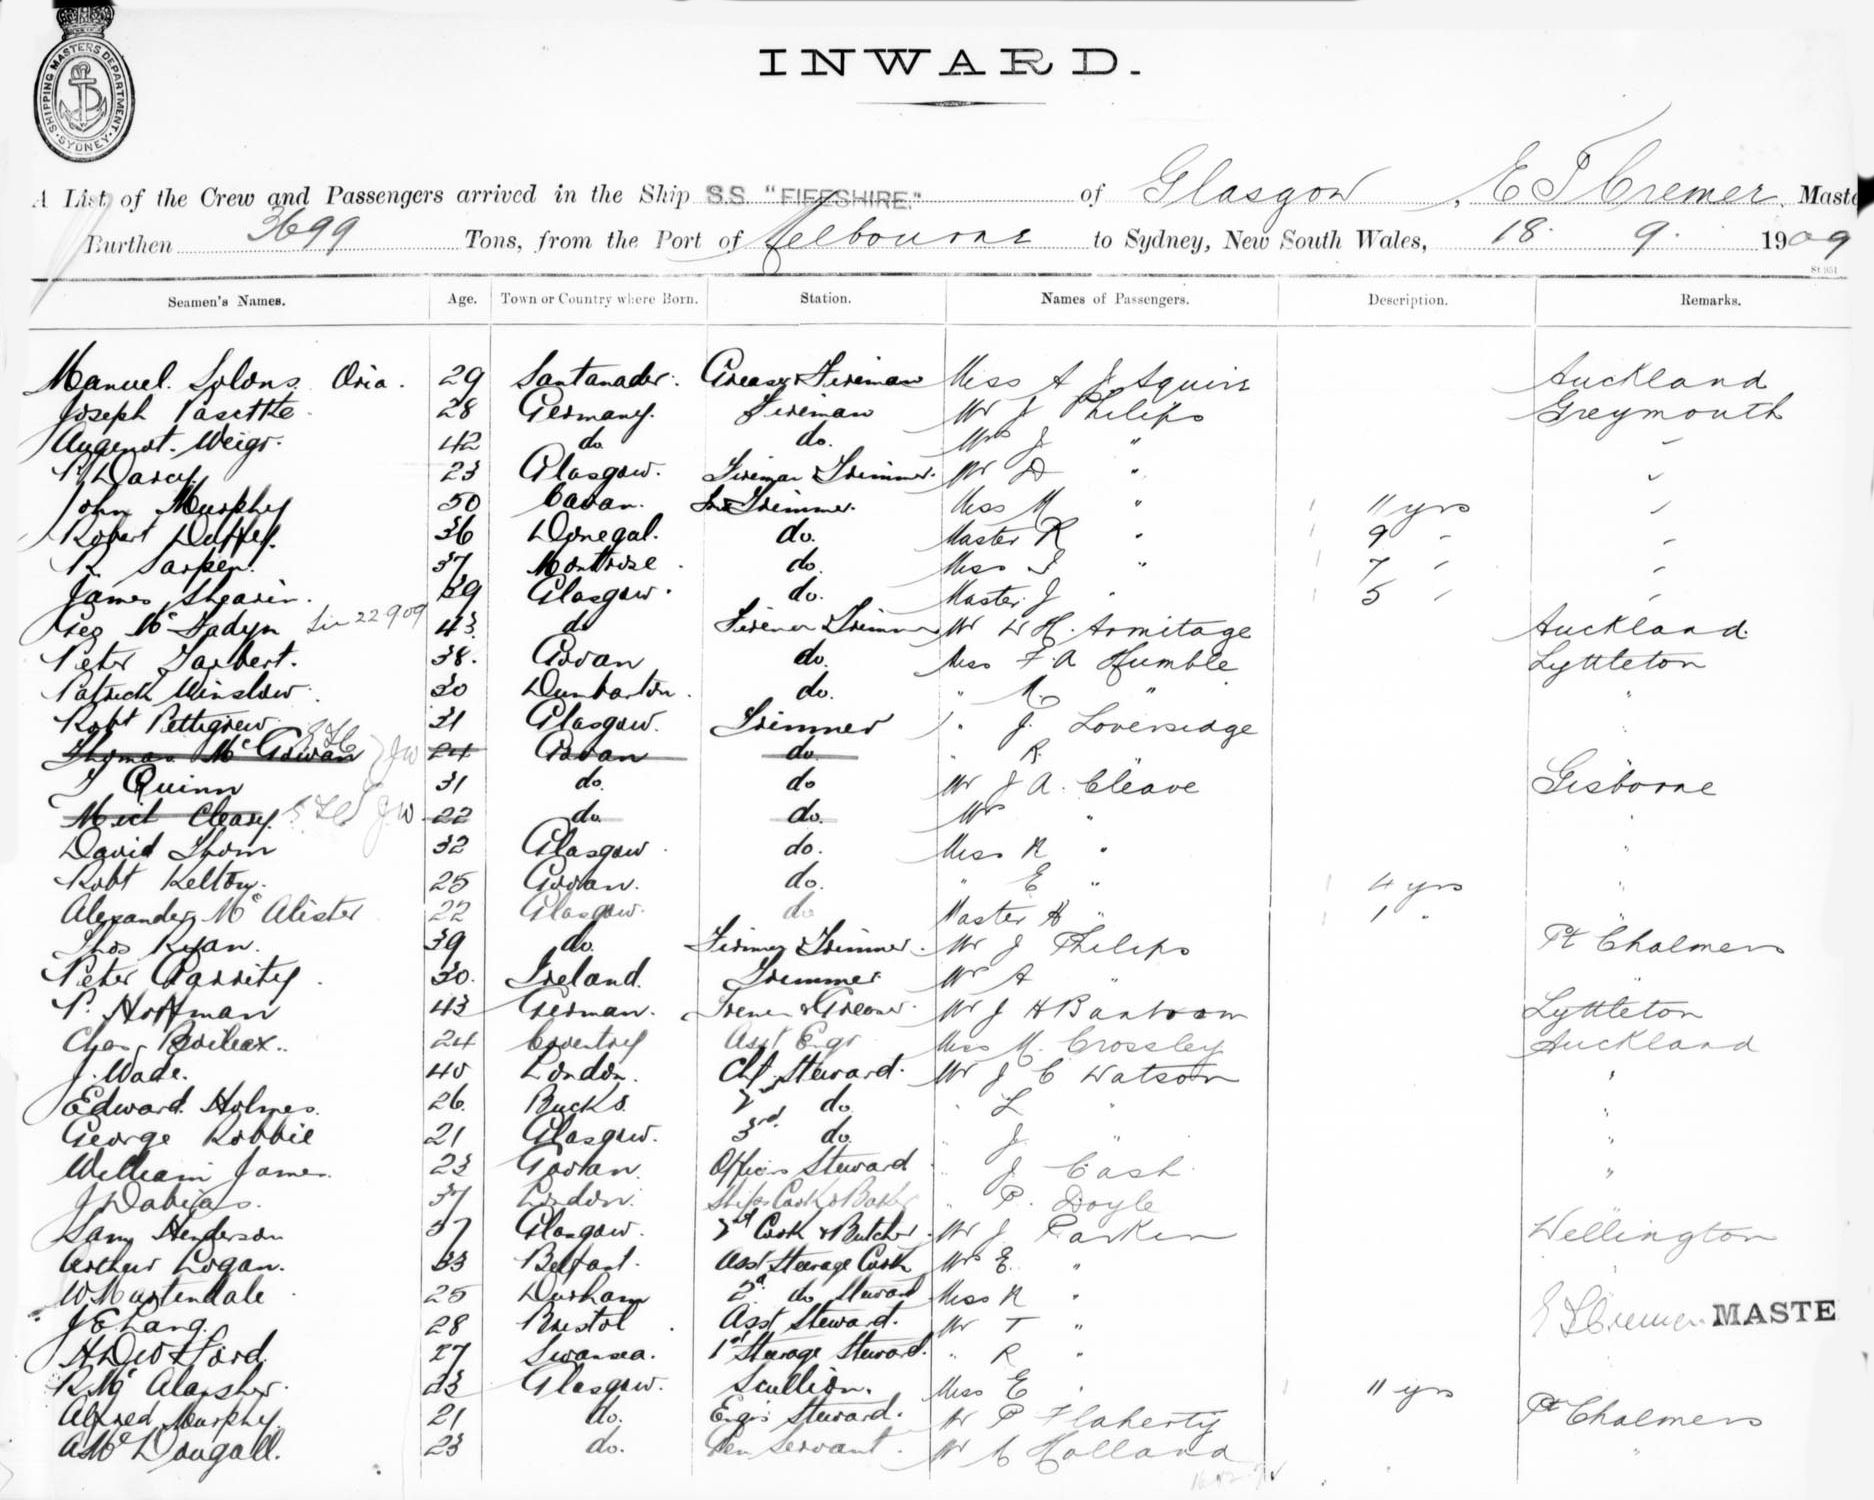 SHIPPING MASTERS DEPARTMENT · SYDNEY ·
INWARD.
A List of the Crew and Passengers arrived in the Ship S.S. "FIFESHIRE." of Glasgow, E T Cremer, Maste
Burthen 3699 Tons, from the Port of Melbourne to Sydney, New South Wales, 18. 9. 1909
St 951
Seamen's Names. Age. Town or Country where Born. Station. Names of Passengers. Description. Remarks.
Manuel Oria. 29 Santanader. Greaser & Fireman Miss A J Squire Auckland
Joseph 28 Germany. Fireman Mr J Philips Greymouth
Weigr. 42 do do. Mrs J "
P. Darcy. 23 Glasgow. Fireman & Trimmer. Mr D "
John Murphy 50 Cavan. Trimmer. Miss M " 11 yrs
Robert Duffey. 36 Donegal. do. Master R " 9 "
37 Montrose do. Miss " 7 "
James Shearin. 39 Glasgow. do. Master J " 5 "
Geo McFadyn 22 9 09 43. do Fireman & Trimmer Mr W H. Armitage Auckland.
Peter Tarbert. 38. Govan do. Miss F. A Humble Lyttleton
Patrick Winslow. 30 Dumbarton. do. " M. " "
Robt Pettigrew 31 Glasgow. Trimmer " J. Loversidge
Thomas McGowan 24 Govan do " R. "
T Quinn 31 do. do Mr J A. Cleave Gisborne
Mich Cleary. J.W 22 do do. Mrs " "
David Thom 32 Glasgow. do. Miss R " "
Robt Kelton. 25 Govan. do. " E " 4 yrs "
Alexander McAlister 22 Glasgow. do Master H " 1 "
Thos Ryan. 39 do. Fireman & Trimmer. Mr J Philips Pt Chalmers
Peter Garrity. 30. Ireland. Trimmer Mr A " "
P. Hoffman 43 German. & Greaser. Mr J H Lyttleton
Chas 24 Coventry Asst Engr Miss M. Crossley Auckland
J. Wade. 40 London. Chf. Steward. Mr J C Watson "
Edward Holmes. 26. Bucks. 2nd do. " L " "
George Robbie 21 Glasgow. 3rd. do. " J. " "
William James. 23 Govan. Officers Steward " J Cash "
J 37 London. Ships Cook & Baker " P. Doyle
Samy Henderson 37 Glasgow. 2nd Cook & Butcher. Mr J Parker Wellington
Arthur Logan. 33 Belfast. Asst Steerage Cook Mrs E. "
W Martendale 25 Durham 2nd do Steward Miss R "
J E Lang. 28 Bristol. Asst Steward. Mr T " E T Cremer. MASTE
27 Swansea. 1st Steerage Steward. " R "
R. Mc 23 Glasgow. Scullion. Miss E " 11 yrs
Alfred Murphy. 21 do. Engrs Steward. Mr P Flaherty Pt Chalmers
A McDougall. 23 do. Gen Servant. Mr Holland "